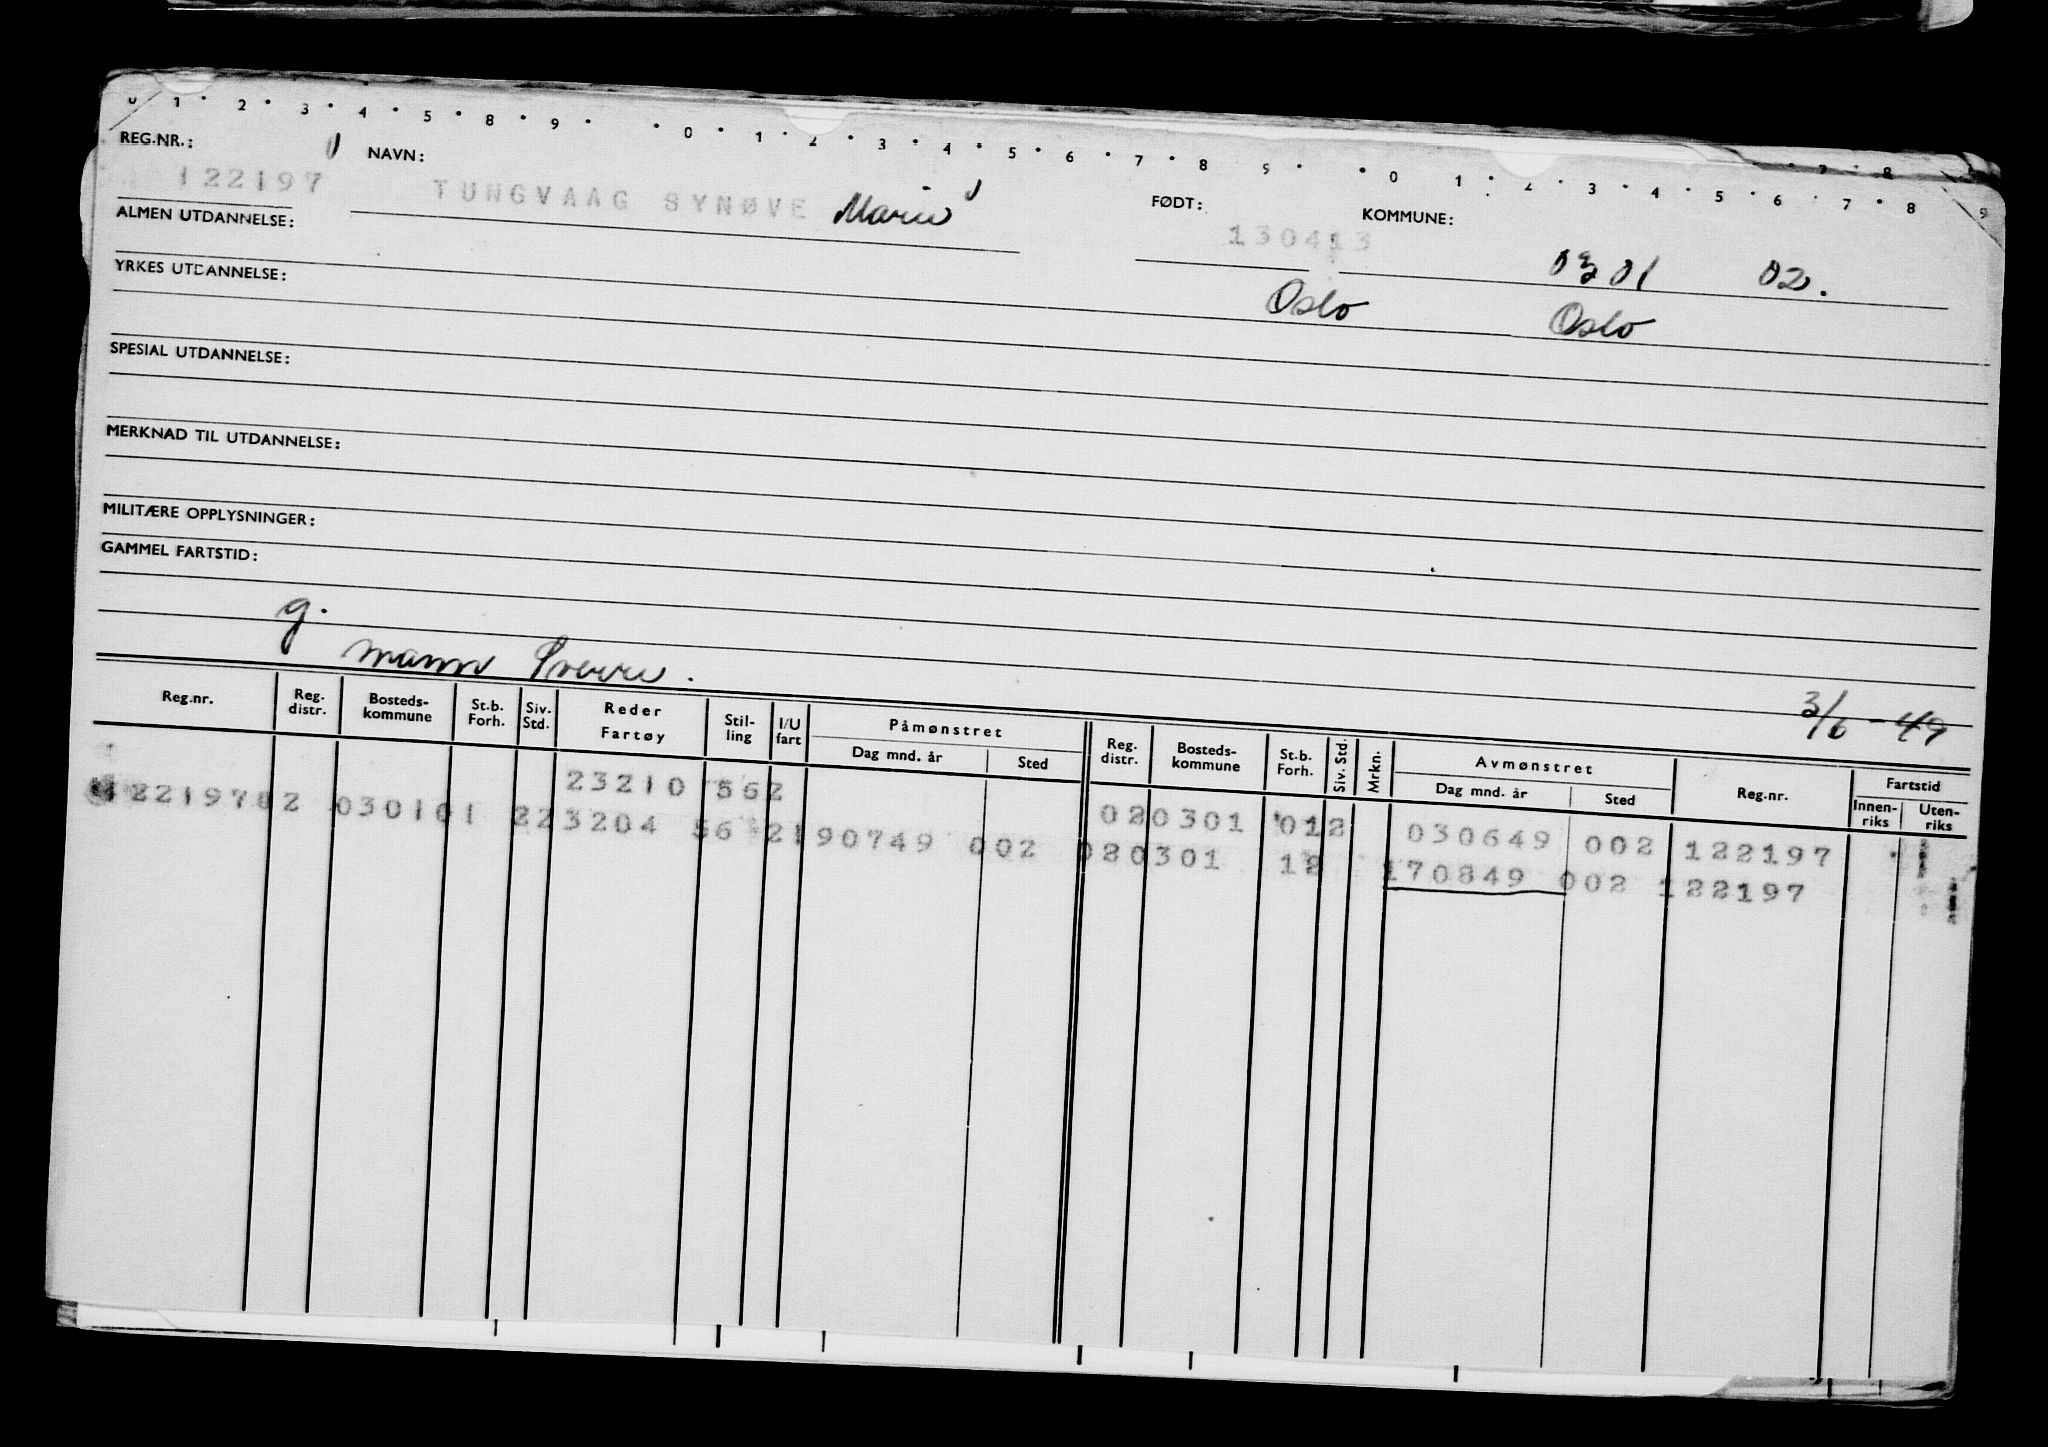 0 1 · 2 · 3 · 4 · 5 · 8 · 9 · · 0 · 1 · 2 · 3 · 4 · 5 · 6 · 7 · 8 9 · · 0 1 · 2 · 3 · 4 · 5 · 6 · 7 · 8 9
· 7 · 8
REG.NR.: NAVN: FØDT: KOMMUNE:
122197 TUNGVAAG SYNØVE Marie 130413 0301 02.
ALMEN UTDANNELSE:
Oslo Oslo
YRKES UTDANNELSE:
SPESIAL UTDANNELSE:
MERKNAD TIL UTDANNELSE:
MILITÆRE OPPLYSNINGER:
GAMMEL FARTSTID:
g.
mann Sverre.
3/6 - 49
Reg.nr. Reg. distr. Bosteds-kommune St.b. Forh. Siv. Std. Reder Fartøy Stil-ling I/U fart Påmønstret Dag mnd. år Sted Reg. distr. Bosteds-kommune St.b. Forh. Siv. Std. Mrkn. Avmønstret Dag mnd. år Sted Reg.nr. Fartstid Innen-riks Uten-riks
23210 562 020301 012 030649 002 122197
030101 223204 56 2190749 002 020301 12 170849 002 122197